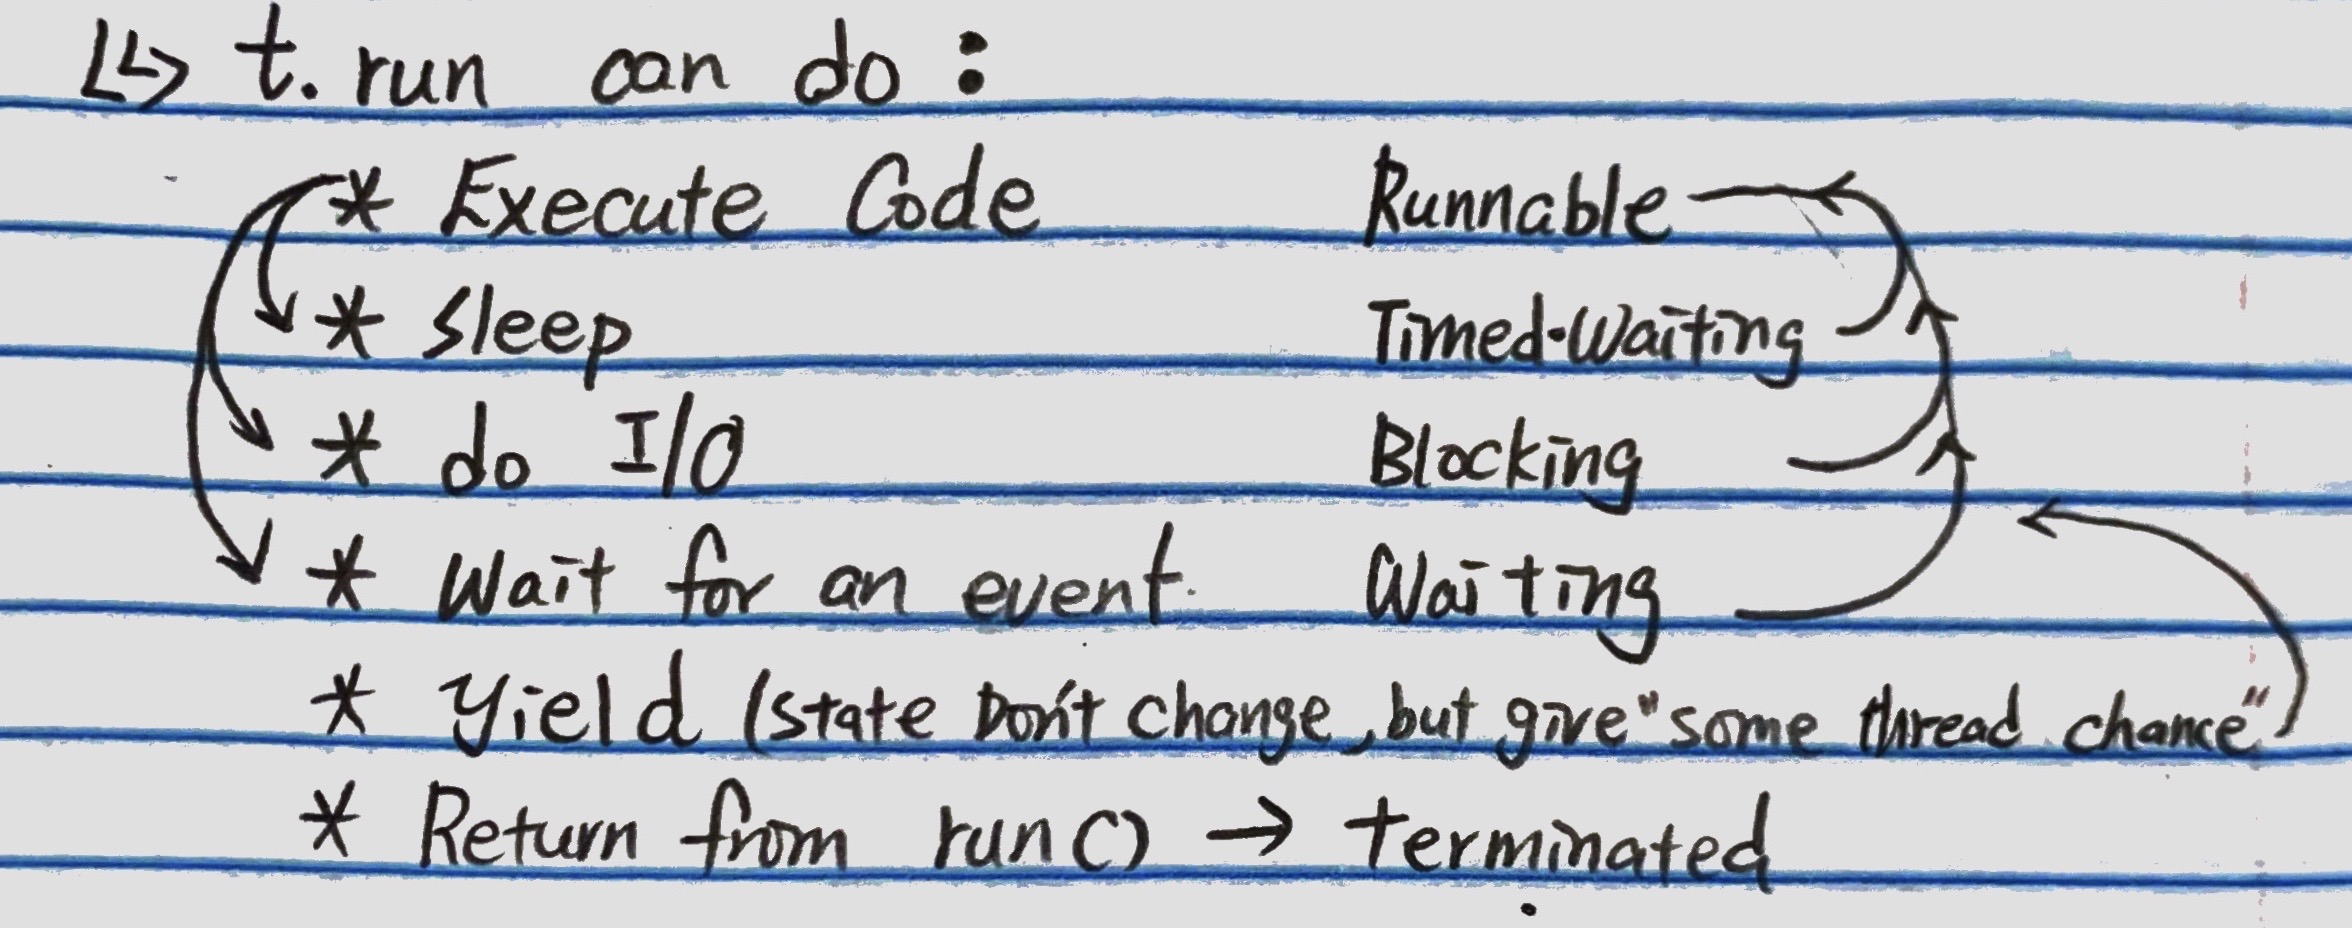 ↳ t.run can do:
* Execute Code Runnable
* sleep Timed-Waiting
* do I/O Blocking
* Wait for an event. Waiting
* Yield (state Don't change, but give "some thread chance")
* Return from run() → terminated